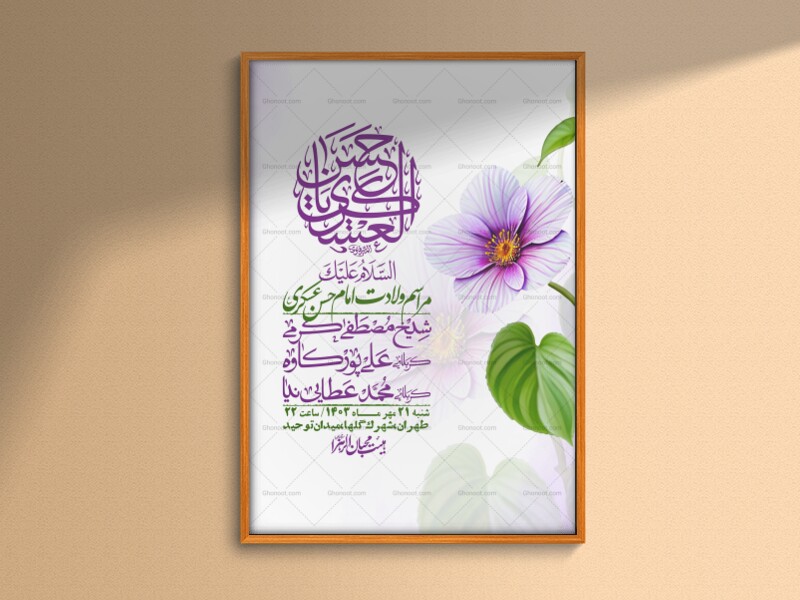 یا حسن العسکری
السَّلامُ عَلَیْکَ
مراسم ولادت امام حسن عسکری
شیخ مصطفی کرمی
کربلایی علی پورکاوه
کربلایی محمد عطایی نیا
شنبه ۲۱ مهر ماه ۱۴۰۳ / ساعت ۲۲
طهران، شهرک گلها، میدان توحید
هیئت محبان الزهرا
Ghonoot.com